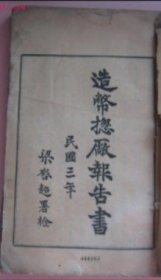 造幣總廠報告書
民國三年
梁啓超署檢